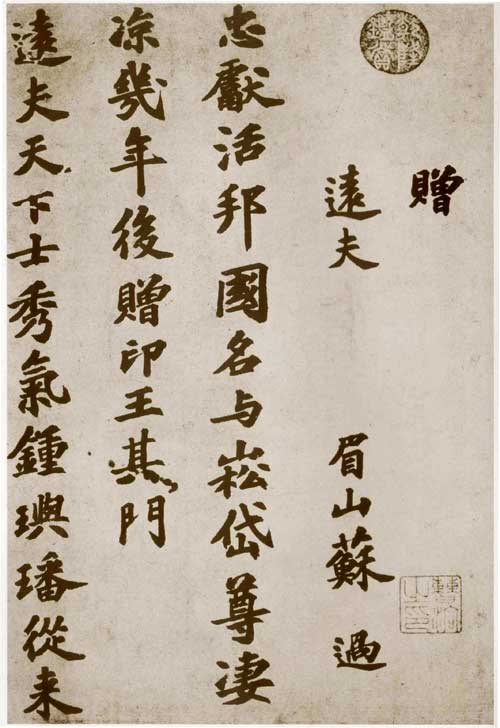 贈
遠夫 眉山蘇過
忠獻活邦國名与崧岱尊淒
涼幾年後贈印王其門
遠夫天下士秀氣鍾璵璠從来